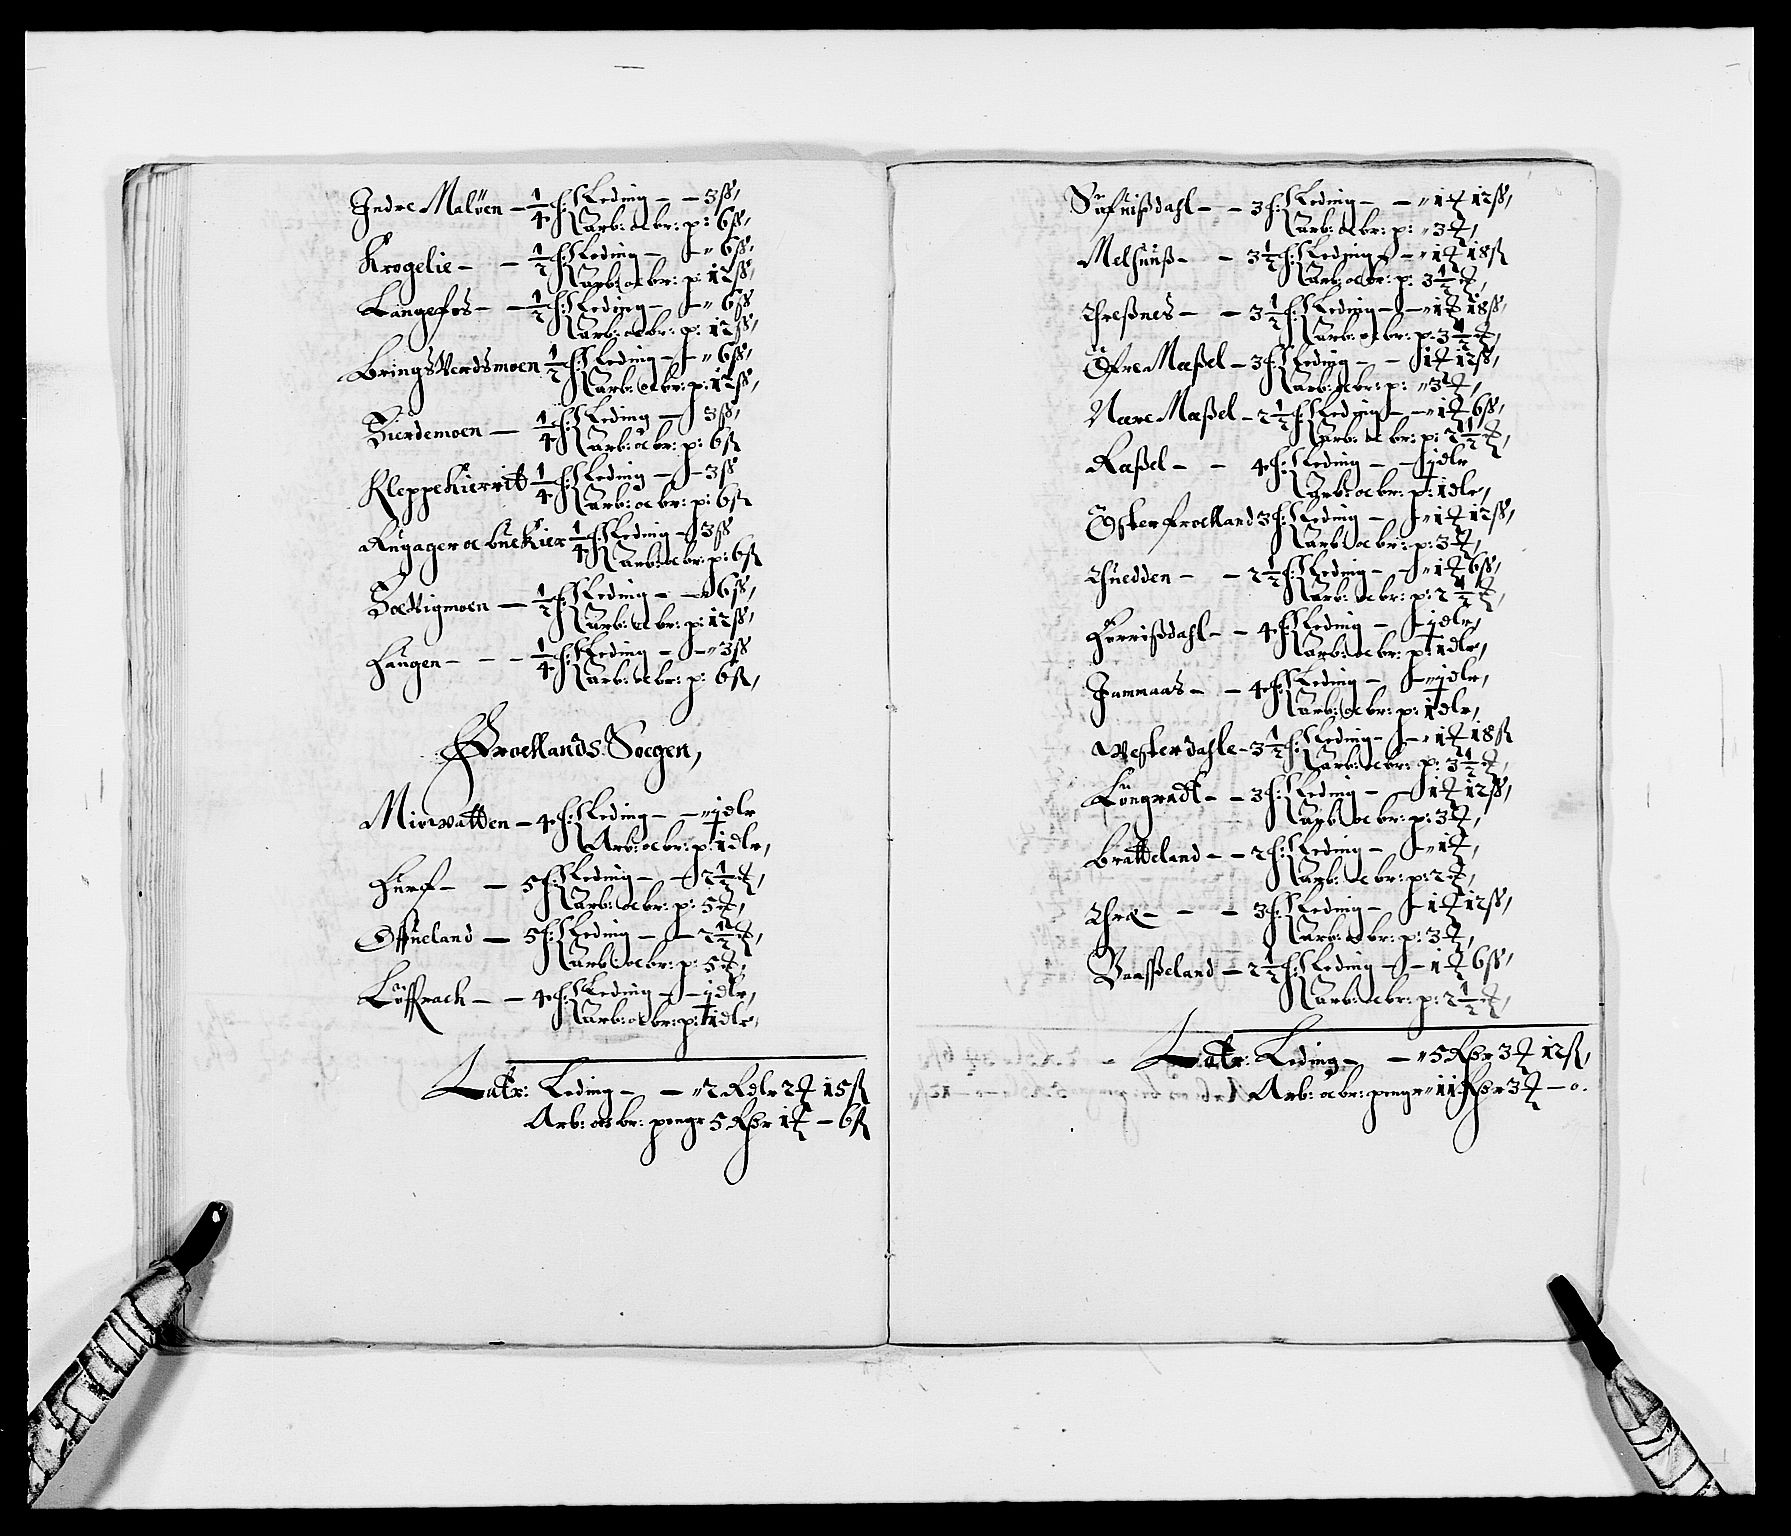 Indre Maløen – 1/4 h: Leding – – 3 ß,
arb: oc br: p: 6 ß,
Krogelie – – 1/2 h: Leding – – " 6 ß,
arb: oc br: p: 12 ß,
Langefos – – 1/2 h: Leding – – " 6 ß
arb: oc br: p: 12 ß,
BringsVerdsmoen 1/2 h: Leding – – " 6 ß,
arb: oc br: p: 12 ß,
1/4 h: Leding – 3 ß,
arb: oc br: p: 6 ß
Kleppekierrit 1/4 h: Leding – – 3 ß
arb: oc br: p: 6 ß
Rugager oc buckier 1/4 h: Leding – 3 ß
arb: oc br: p: 6 ß
1/2 h: Leding – – 6 ß,
arb: oc br: p: 12 ß,
Haugen – – – 1/4 h: Leding – – " 3 ß
arb: oc br: p: 6 ß,
Froellands Soegen,
Miøvatten – 4 h: Leding – – " 1 dlr
Arb: oc br: p: 1 dlr,
Huref – – 5 h: Leding – – 2 1/2 ₰,
arb: oc br: p: 5 ₰,
Ossueland – 5 h: Leding – – 2 1/2 ₰,
arb: oc br: p: 5 ₰,
Løffrach – – 4 h: Leding – – 1 dlr,
arb: oc br: p: 1 dlr,
Latr: Leding – – " 2 Rdlr 2 ₰ 15 ß
Arb: oc br: penge 5 Rdr 1 ₰ – 6 ß
– – 3 h: Leding – – " 1 ₰ 12 ß,
arb: oc br: p: " 3 ₰,
Melhuuß – – 3 1/2 h: Leding – – " 1 ₰ 18 ß
arb: oc br: p: 3 1/2 ₰,
Threßnes – – 3 1/2 h: Leding – – " 1 ₰ 18 ß,
arb: oc br: p: 3 1/2 ₰,
Øfre Meßel – 3 h: Leding – – 1 ₰ 12 ß,
arb: oc br: p: " 3 ₰,
Nere Meßel – 2 1/2 h: Leding – – " 1 ₰ 6 ß,
arb: oc br: p: 2 1/2 ₰,
Raßel – – 4 h: Leding – – 1 dlr
arb: oc br: p: 1 dlr,
Østerfroelland 3 h: Leding – – " 1 ₰ 12 ß,
arb: oc br: p: 3 ₰,
Thuedden – – 2 1/2 h: Leding – – " 1 ₰ 6 ß,
arb: oc br: p: 2 1/2 ₰,
Herrißdahl – – 4 h: Leding – – 1 dlr,
arb: oc br: p: 1 dlr,
Jammaas – – 4 h: Leding – – " 1 dlr,
arb: oc br: p: 1 dlr,
Westerdahle – 3 1/2 h: Leding – – " 1 ₰ 18 ß
arb: oc br: p: 3 1/2 ₰,
– – 3 h: Leding – – 1 ₰ 12 ß,
arb: oc br: p: 3 ₰,
Bratteland – – 2 h: Leding – – " 1 ₰,
arb: oc br: p: 2 ₰,
Thræ – – – 3 h: Leding – – 1 ₰ 12 ß,
arb: oc br: p: 3 ₰,
Vaaßeland – 2 1/2 h: Leding – – 1 ₰ 6 ß,
arb: oc br: p: 2 1/2 ₰,
Latr: Leding – – " 5 Rdr 3 ₰ 12 ß,
Arb: oc br: penge " 11 Rdr 3 ₰ – 0.